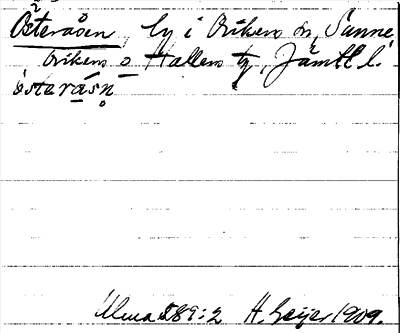 Österåsen, by i Orikens sn, Sunne,
Orikens o Hallens tg, Jämtl l.
österåsn̥
Ulma 589:2 H. Geijer 1909.